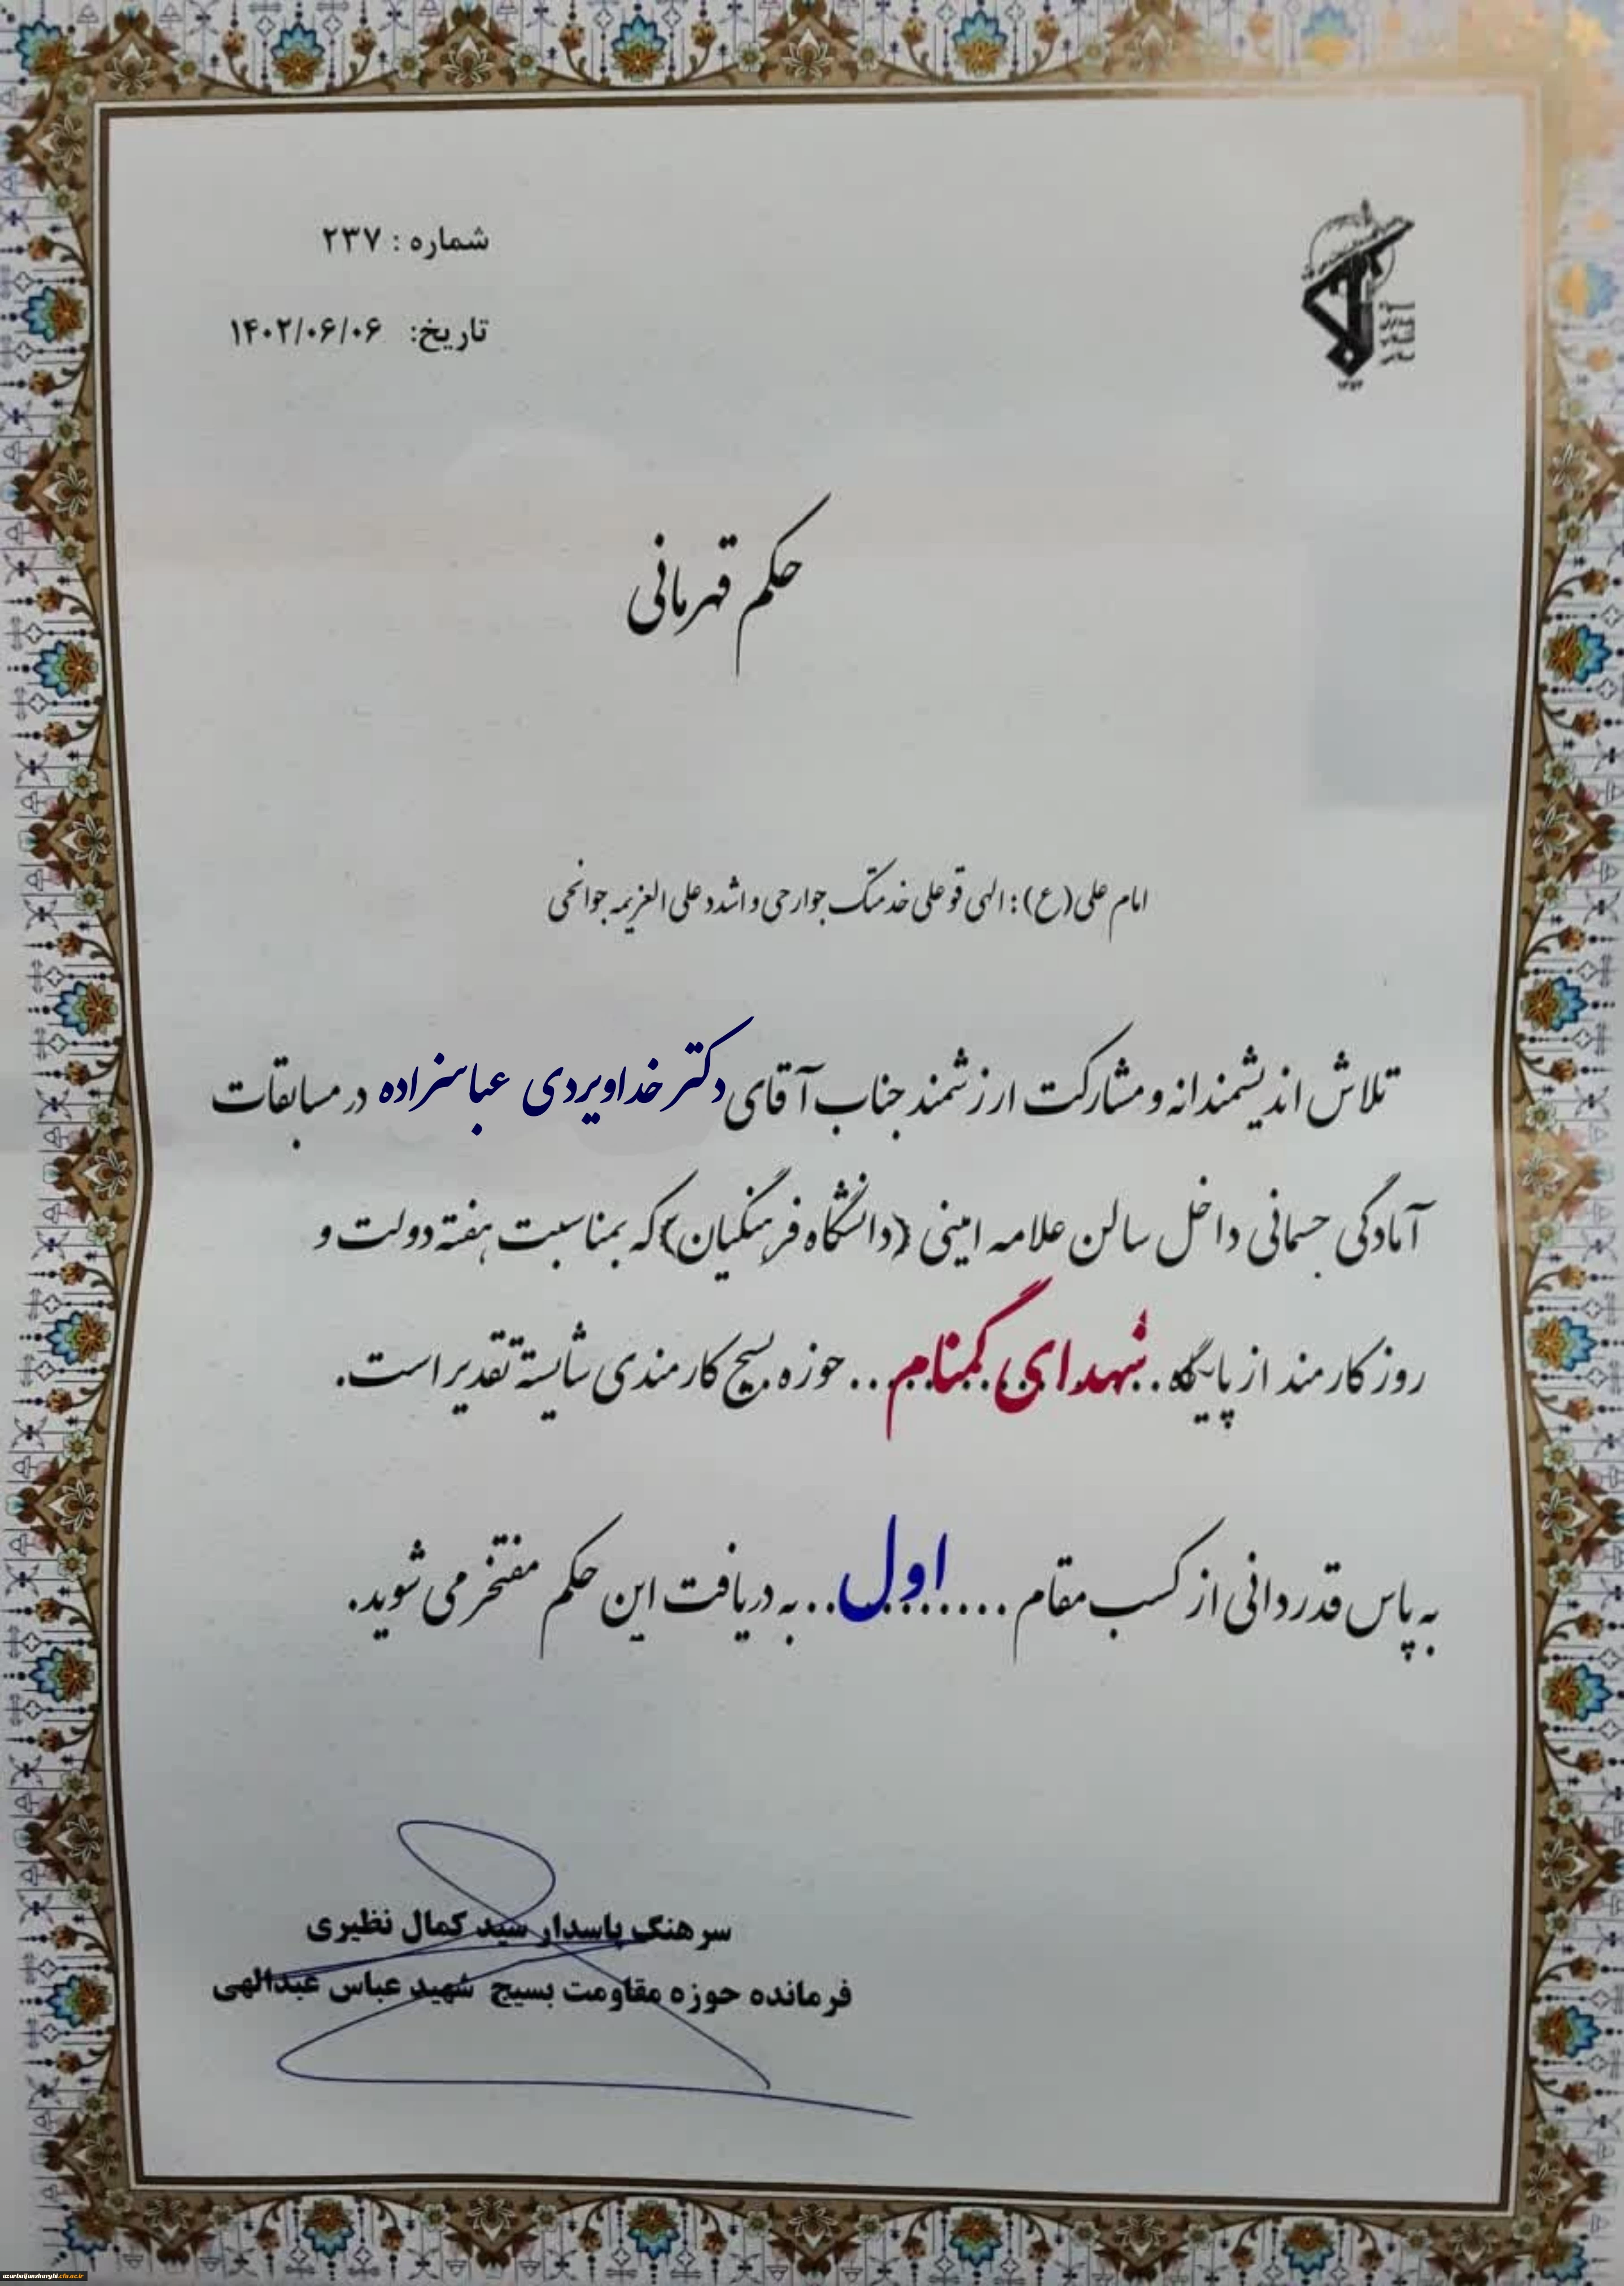 شماره : ۲۳۷
تاریخ: ۱۴۰۲/۰۶/۰۶
حکم قهرمانی
امام علی (ع) : الهی قو علی خدمتک جوارحی و اشدد علی العزیمه جوانحی
تلاش اندیشمندانه و مشارکت ارزشمند جناب آقای دکتر خداویردی عباسزاده در مسابقات
آمادگی جسمانی داخل سالن علامه امینی (دانشگاه فرهنگیان) که بمناسبت هفته دولت و
روز کارمند از پایگاه .. شهدای گمنام ... حوزه بسیج کارمندی شایسته تقدیر است.
به پاس قدردانی از کسب مقام .... اول .. به دریافت این حکم مفتخر می شوید.
سرهنگ پاسدار سید کمال نظیری
فرمانده حوزه مقاومت بسیج شهید عباس عبدالهی
azarbaijansharghi.cfu.ac.ir